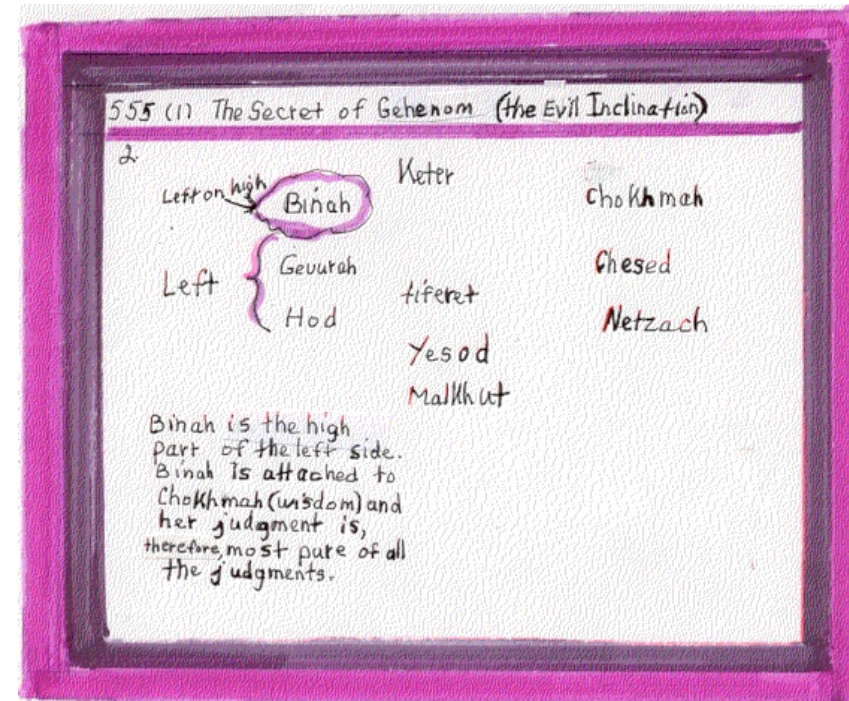 555 (1) The Secret of Gehenom (the Evil Inclination)
2.
Keter
Left on high
Binah
Chokhmah
Left
Gevurah
Chesed
tiferet
Hod
Netzach
Yesod
Malkhut
Binah is the high
part of the left side.
Binah is attached to
Chokhmah (wisdom) and
her judgment is,
therefore, most pure of all
the judgments.